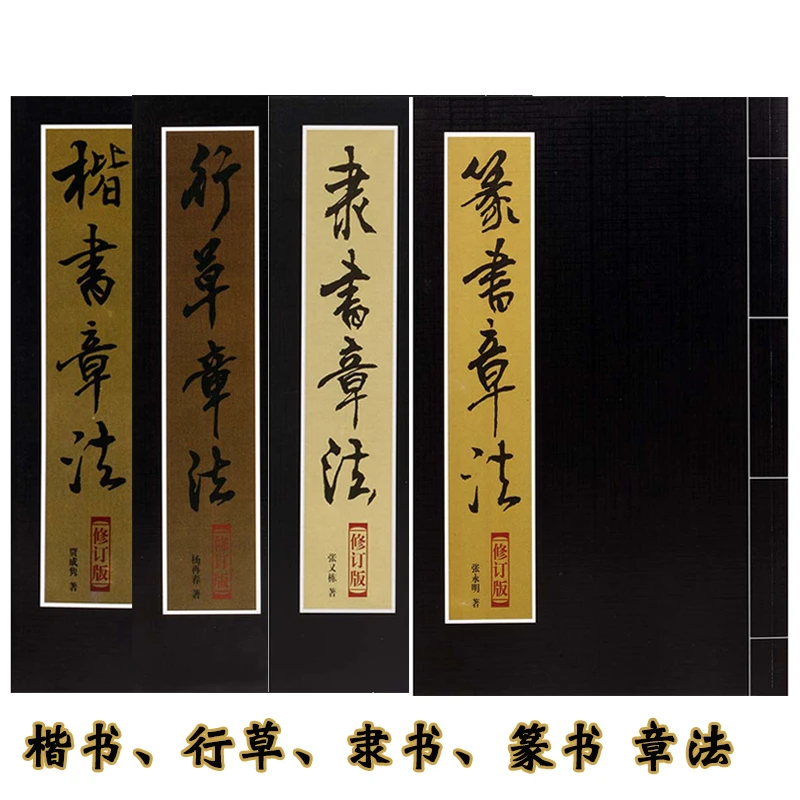 楷書章法
修订版
贾成隽 著
行草章法
修订版
杨再春 著
隶書章法
修订版
张又栋 著
篆書章法
修订版
张永明 著
楷书、行草、隶书、篆书 章法